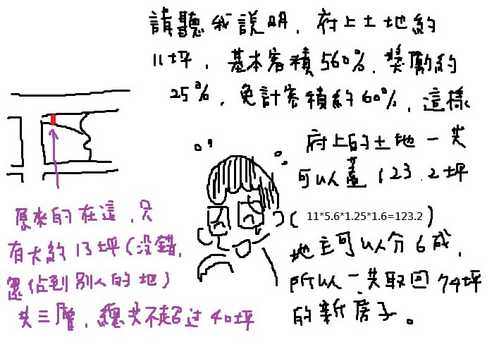 請聽我說明,府上土地約
11坪,基本容積560%,獎勵約
25%,免計容積約60%,這樣
府上的土地一共
可以蓋123.2坪
(11*5.6*1.25*1.6=123.2)
地主可以分6成,
所以一共取回74坪
的新房子。
原來的在這,只
有大約13坪(沒錯,
還佔到別人的地)
共三層,總共不超过40坪